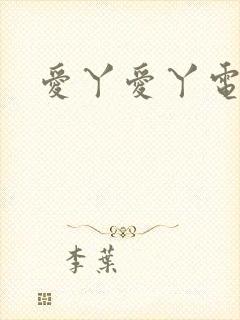 愛丫愛丫電
李葉